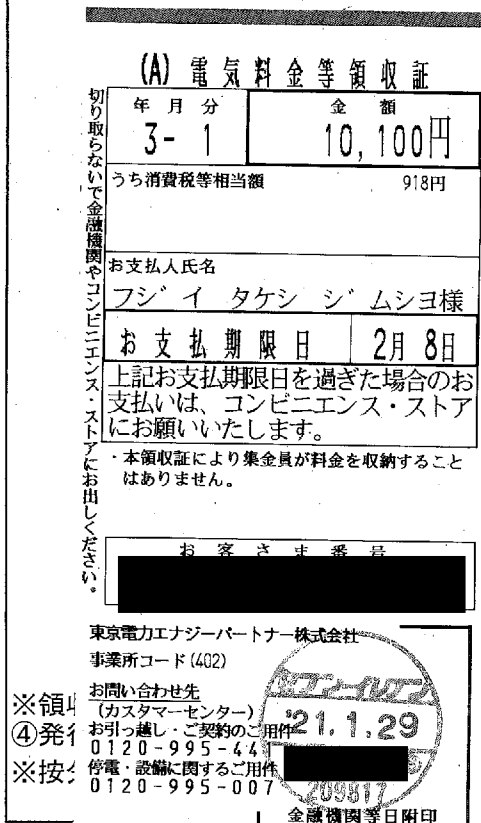 (A) 電気料金等領収証
切り取らないで金融機関やコンビニエンス・ストアにお出しください。
年月分
金額
3- 1
10,100円
うち消費税等相当額
918円
お支払人氏名
フジイ タケシ ジムシヨ様
お支払期限日
2月 8日
上記お支払期限日を過ぎた場合のお
支払いは、コンビニエンス・ストア
にお願いいたします。
・本領収証により集金員が料金を収納すること
はありません。
お客さま番号
東京電力エナジーパートナー株式会社
事業所コード(402)
お問い合わせ先
(カスタマーセンター)
お引っ越し・ご契約のご用件
0120-995-44
停電・設備に関するご用件
0120-995-007
'21.1.29
209817
金融機関等日附印
※領収
④発行
※按分